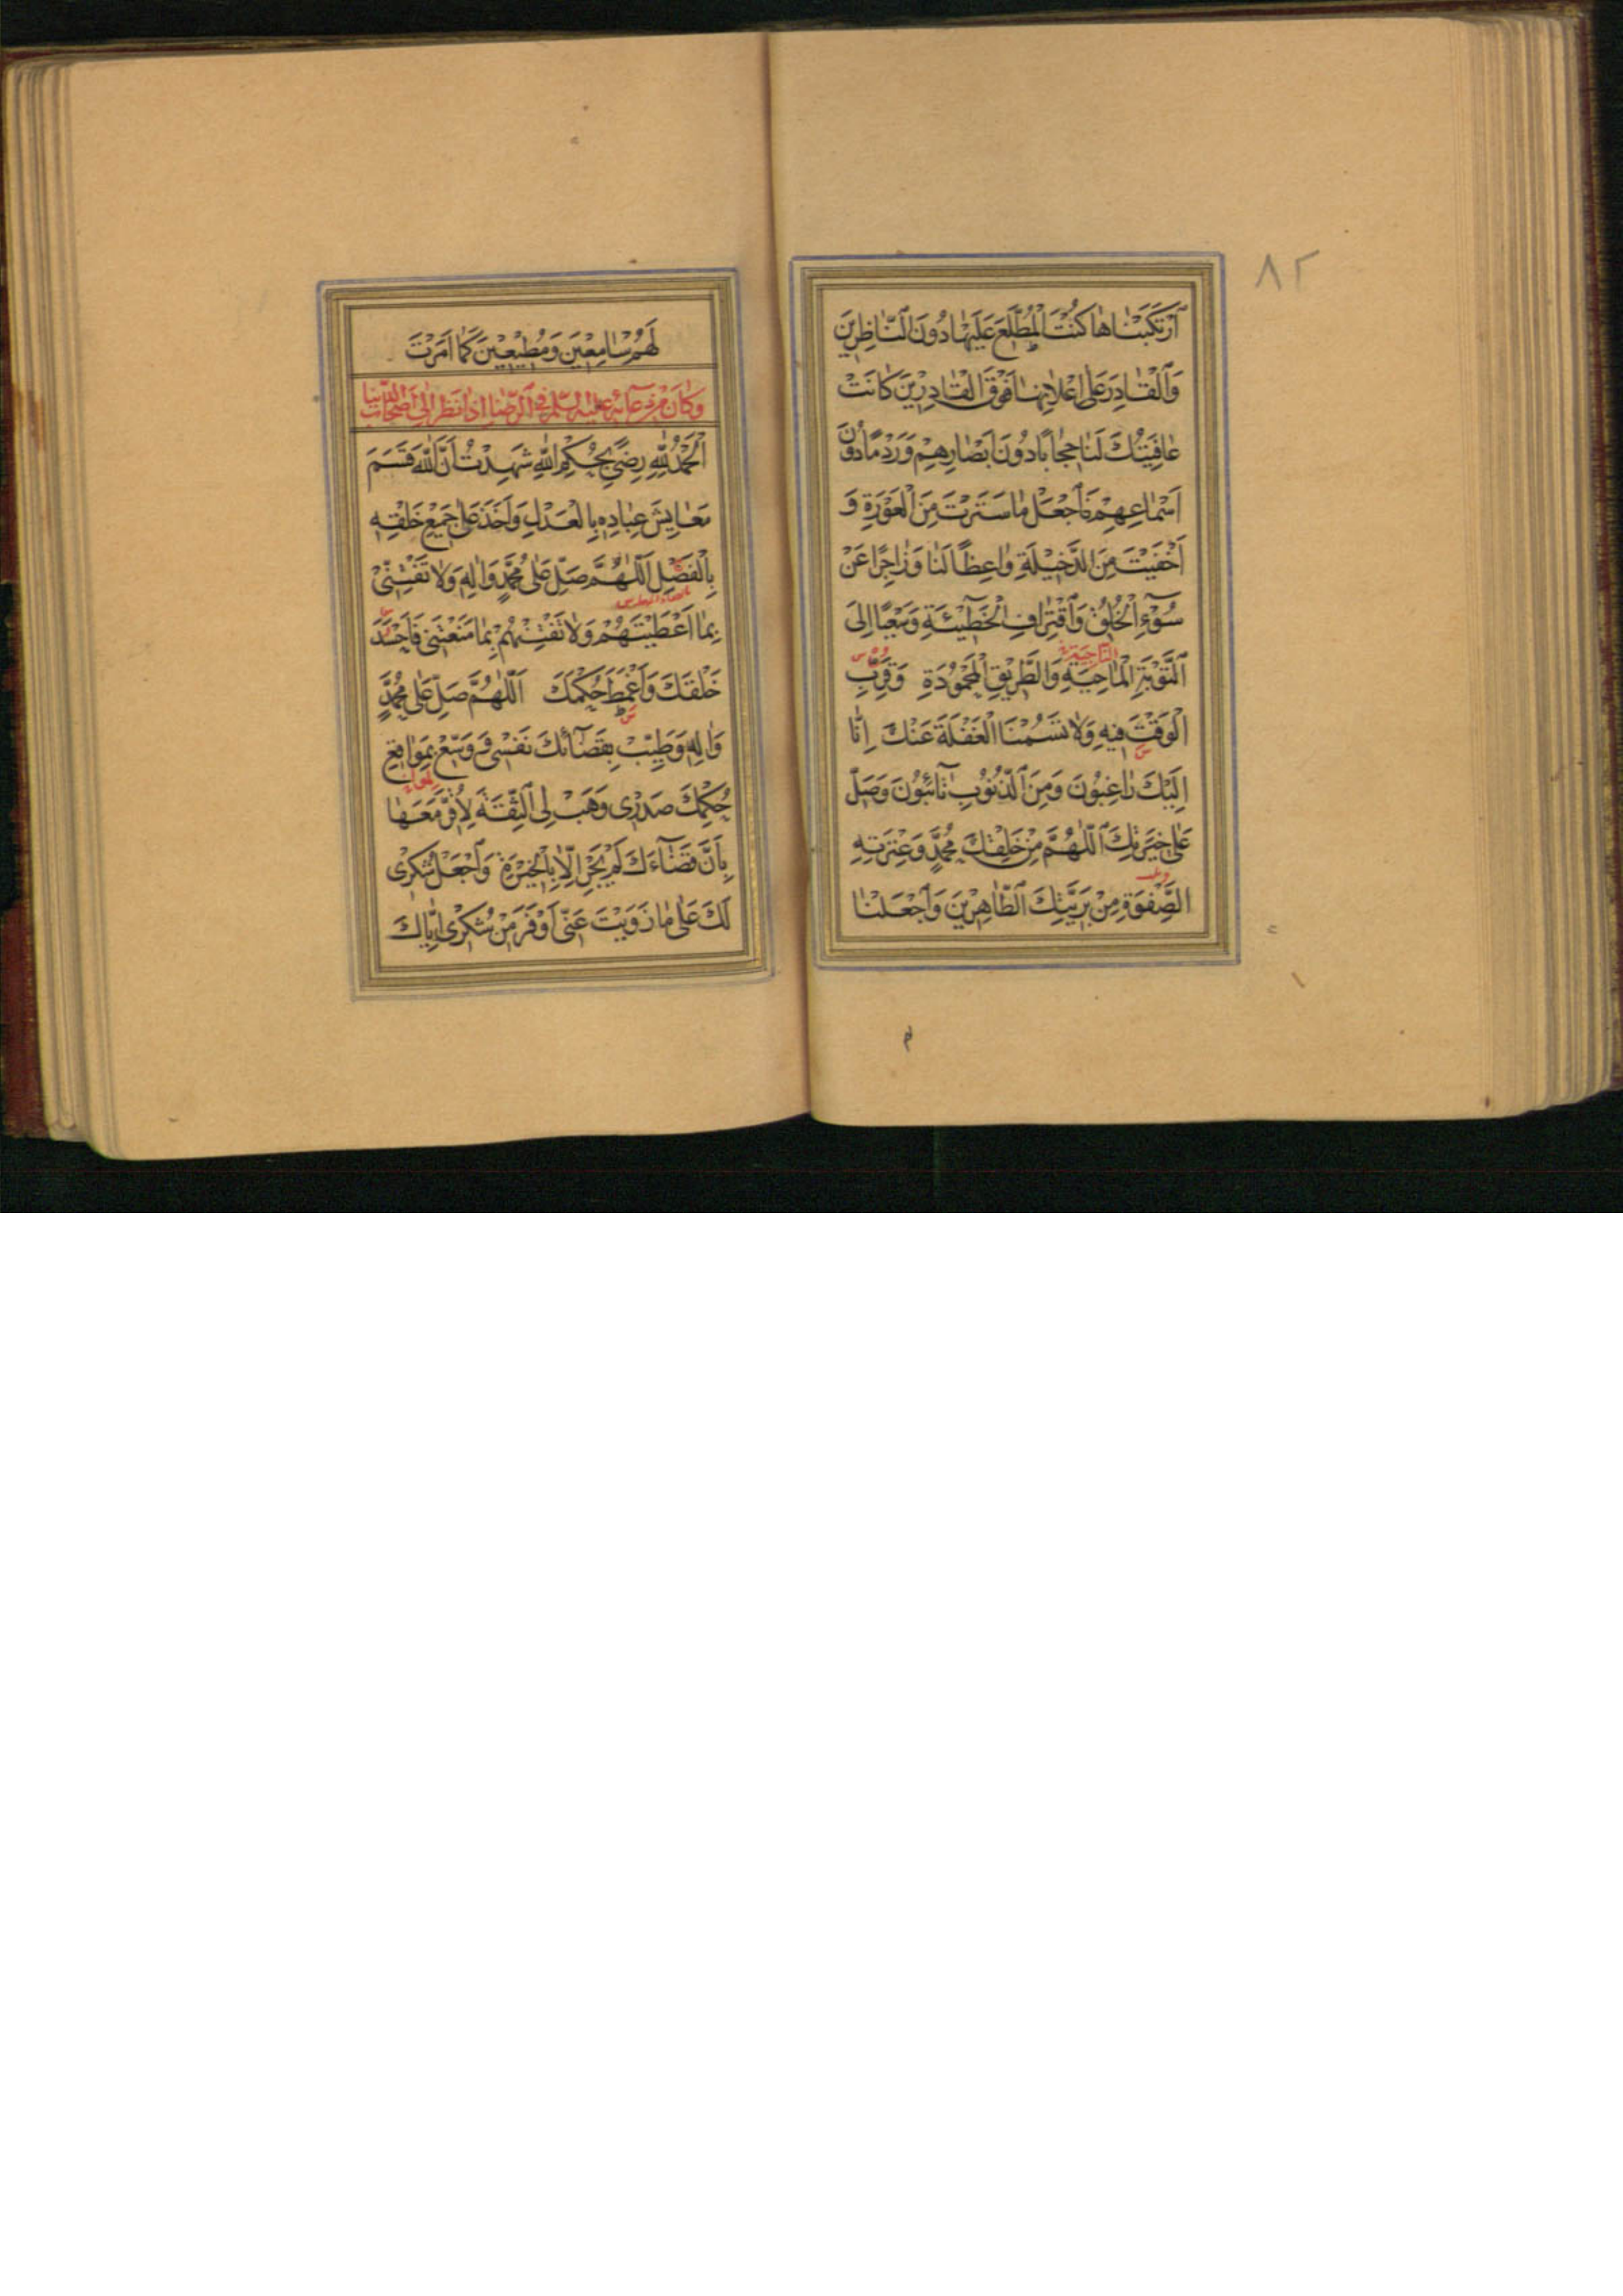 ٨٢
اَرْتَكَبْنَاهَا كُنْتَ الْمُطَّلِعَ عَلَيْهَا دُونَ النَّاظِرِينَ
وَالْقَادِرَ عَلَى اِعْلَانِهَا فَوْقَ الْقَادِرِينَ كَانَتْ
عَافِيَتُكَ لَنَا حِجَابًا دُونَ اَبْصَارِهِمْ وَرَدْمًا دُونَ
اَسْمَاعِهِمْ فَاجْعَلْ مَا سَتَرْتَ مِنَ الْعَوْرَةِ وَ
اَخْفَيْتَ مِنَ الدَّخِيلَةِ وَاعِظًا لَنَا وَزَاجِرًا عَنْ
سُوۤءِ الْخُلُقِ وَاقْتِرَافِ الْخَطِيۤئَةِ وَسَعْيًا اِلَى
التَّوْبَةِ الْمَاحِيَةِ وَالطَّرِيقِ الْمَحْمُودَةِ وَقَرِّبِ
الْوَقْتَ فِيهِ وَلَا تَسُمْنَا الْغَفْلَةَ عَنْكَ اِنَّا
اِلَيْكَ رَاغِبُونَ وَمِنَ الذُّنُوبِ تَاۤئِبُونَ وَصَلِّ
عَلَى خِيَرَتِكَ اللّٰهُمَّ مِنْ خَلْقِكَ مُحَمَّدٍ وَعِتْرَتِهِ
الصَّفْوَةِ مِنْ بَرِيَّتِكَ الطَّاهِرِينَ وَاجْعَلْنَا
لَهُمْ سَامِعِينَ وَمُطِيعِينَ كَمَا اَمَرْتَ
وَكَانَ مِنْ دُعَاۤئِهِ عَلَيْهِ السَّلَمُ فِي الرِّضَا اِذَا نَظَرَ اِلَى اَصْحَابِ الدُّنْيَا
اَلْحَمْدُ لِلّٰهِ رِضًى بِحُكْمِ اللّٰهِ شَهِدْتُ اَنَّ اللّٰهَ قَسَمَ
مَعَايِشَ عِبَادِهِ بِالْعَدْلِ وَاَخَذَ عَلَى جَمِيعِ خَلْقِهِ
بِالْفَضْلِ اَللّٰهُمَّ صَلِّ عَلَى مُحَمَّدٍ وَاٰلِهِ وَلَا تَفْتِنِّي
بِمَا اَعْطَيْتَهُمْ وَلَا تَفْتِنْهُمْ بِمَا مَنَعْتَنِي فَاَحْسُدَ
خَلْقَكَ وَاَغْمِطَ حُكْمَكَ اَللّٰهُمَّ صَلِّ عَلَى مُحَمَّدٍ
وَاٰلِهِ وَطَيِّبْ بِقَضَاۤئِكَ نَفْسِي وَوَسِّعْ بِمَوَاقِعِ
حُكْمِكَ صَدْرِي وَهَبْ لِي الثِّقَةَ لِاُقِرَّ مَعَهَا
بِاَنَّ قَضَاۤءَكَ لَمْ يَجْرِ اِلَّا بِالْخِيَرَةِ وَاجْعَلْ شُكْرِي
لَكَ عَلَى مَا زَوَيْتَ عَنِّي اَوْفَرَ مِنْ شُكْرِي اِيَّاكَ